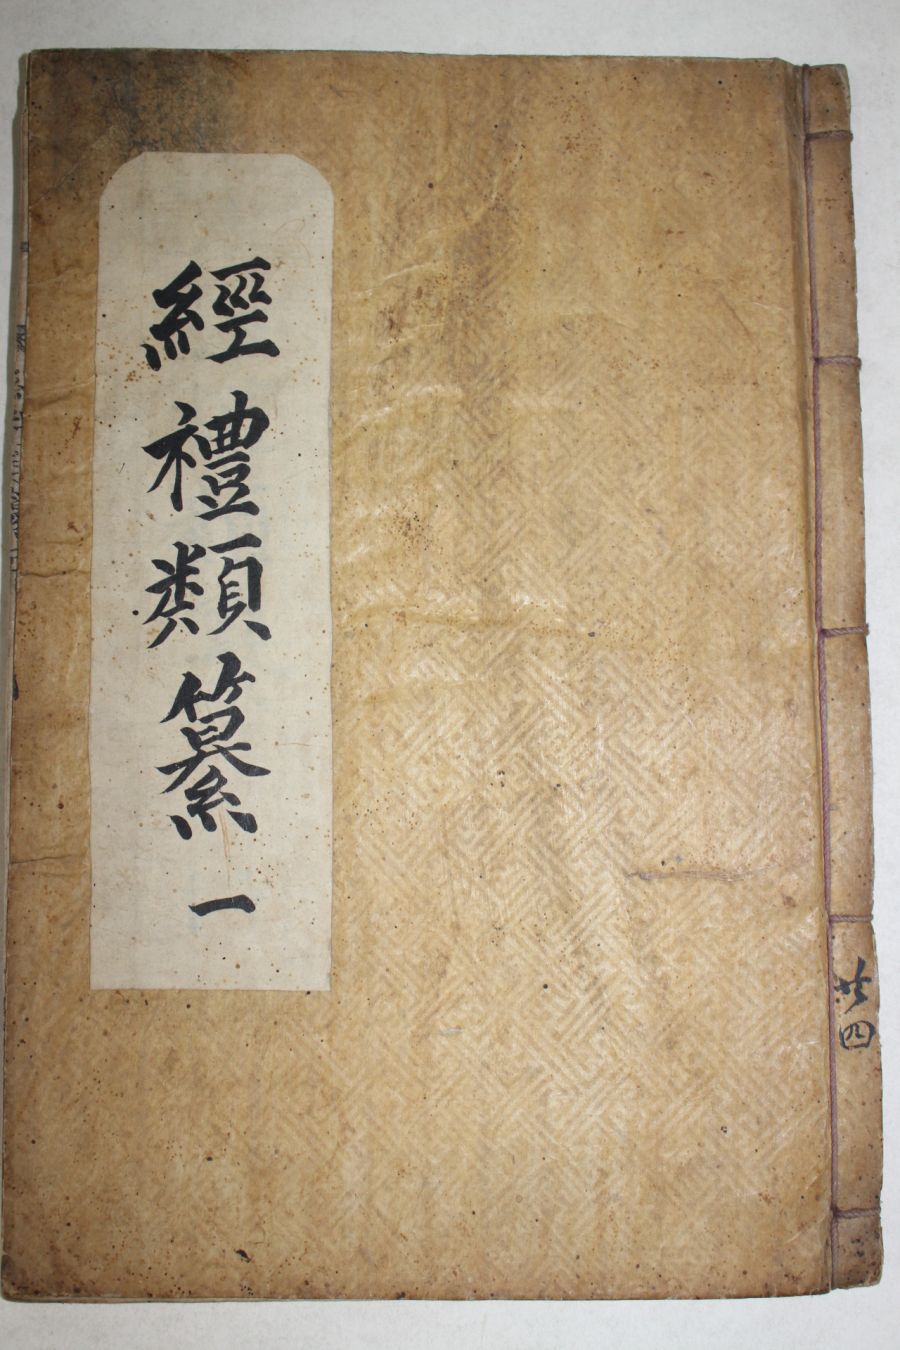 經禮類纂 一
共四